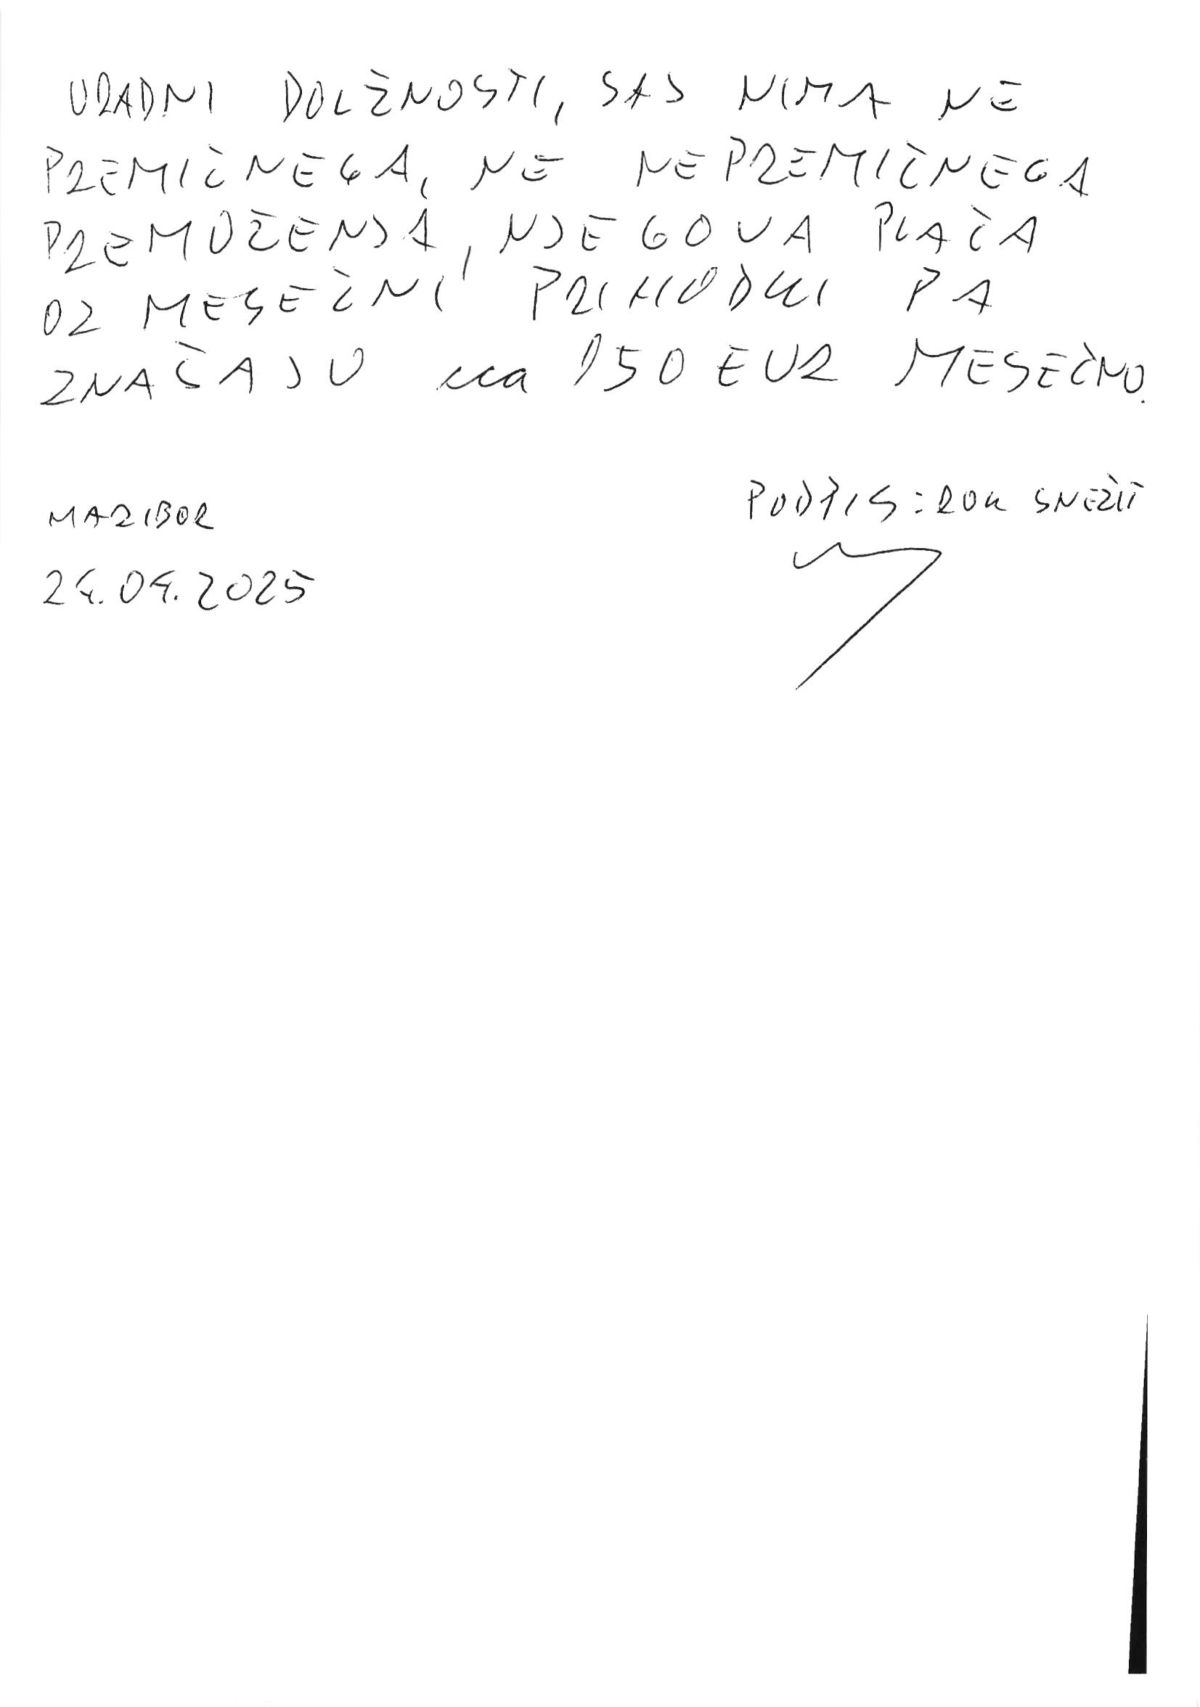 URADNI DOLŽNOSTI, SAJ NIMA NE
PREMIČNEGA, NE NEPREMIČNEGA
PREMOŽENJA, NJEGOVA PLAČA
OZ MESEČNI PRIHODKI PA
ZNAČAJU cca 150 EUR MESEČNO.
PODPIS: ROK SNEŽIČ
MARIBOR
24.04.2025